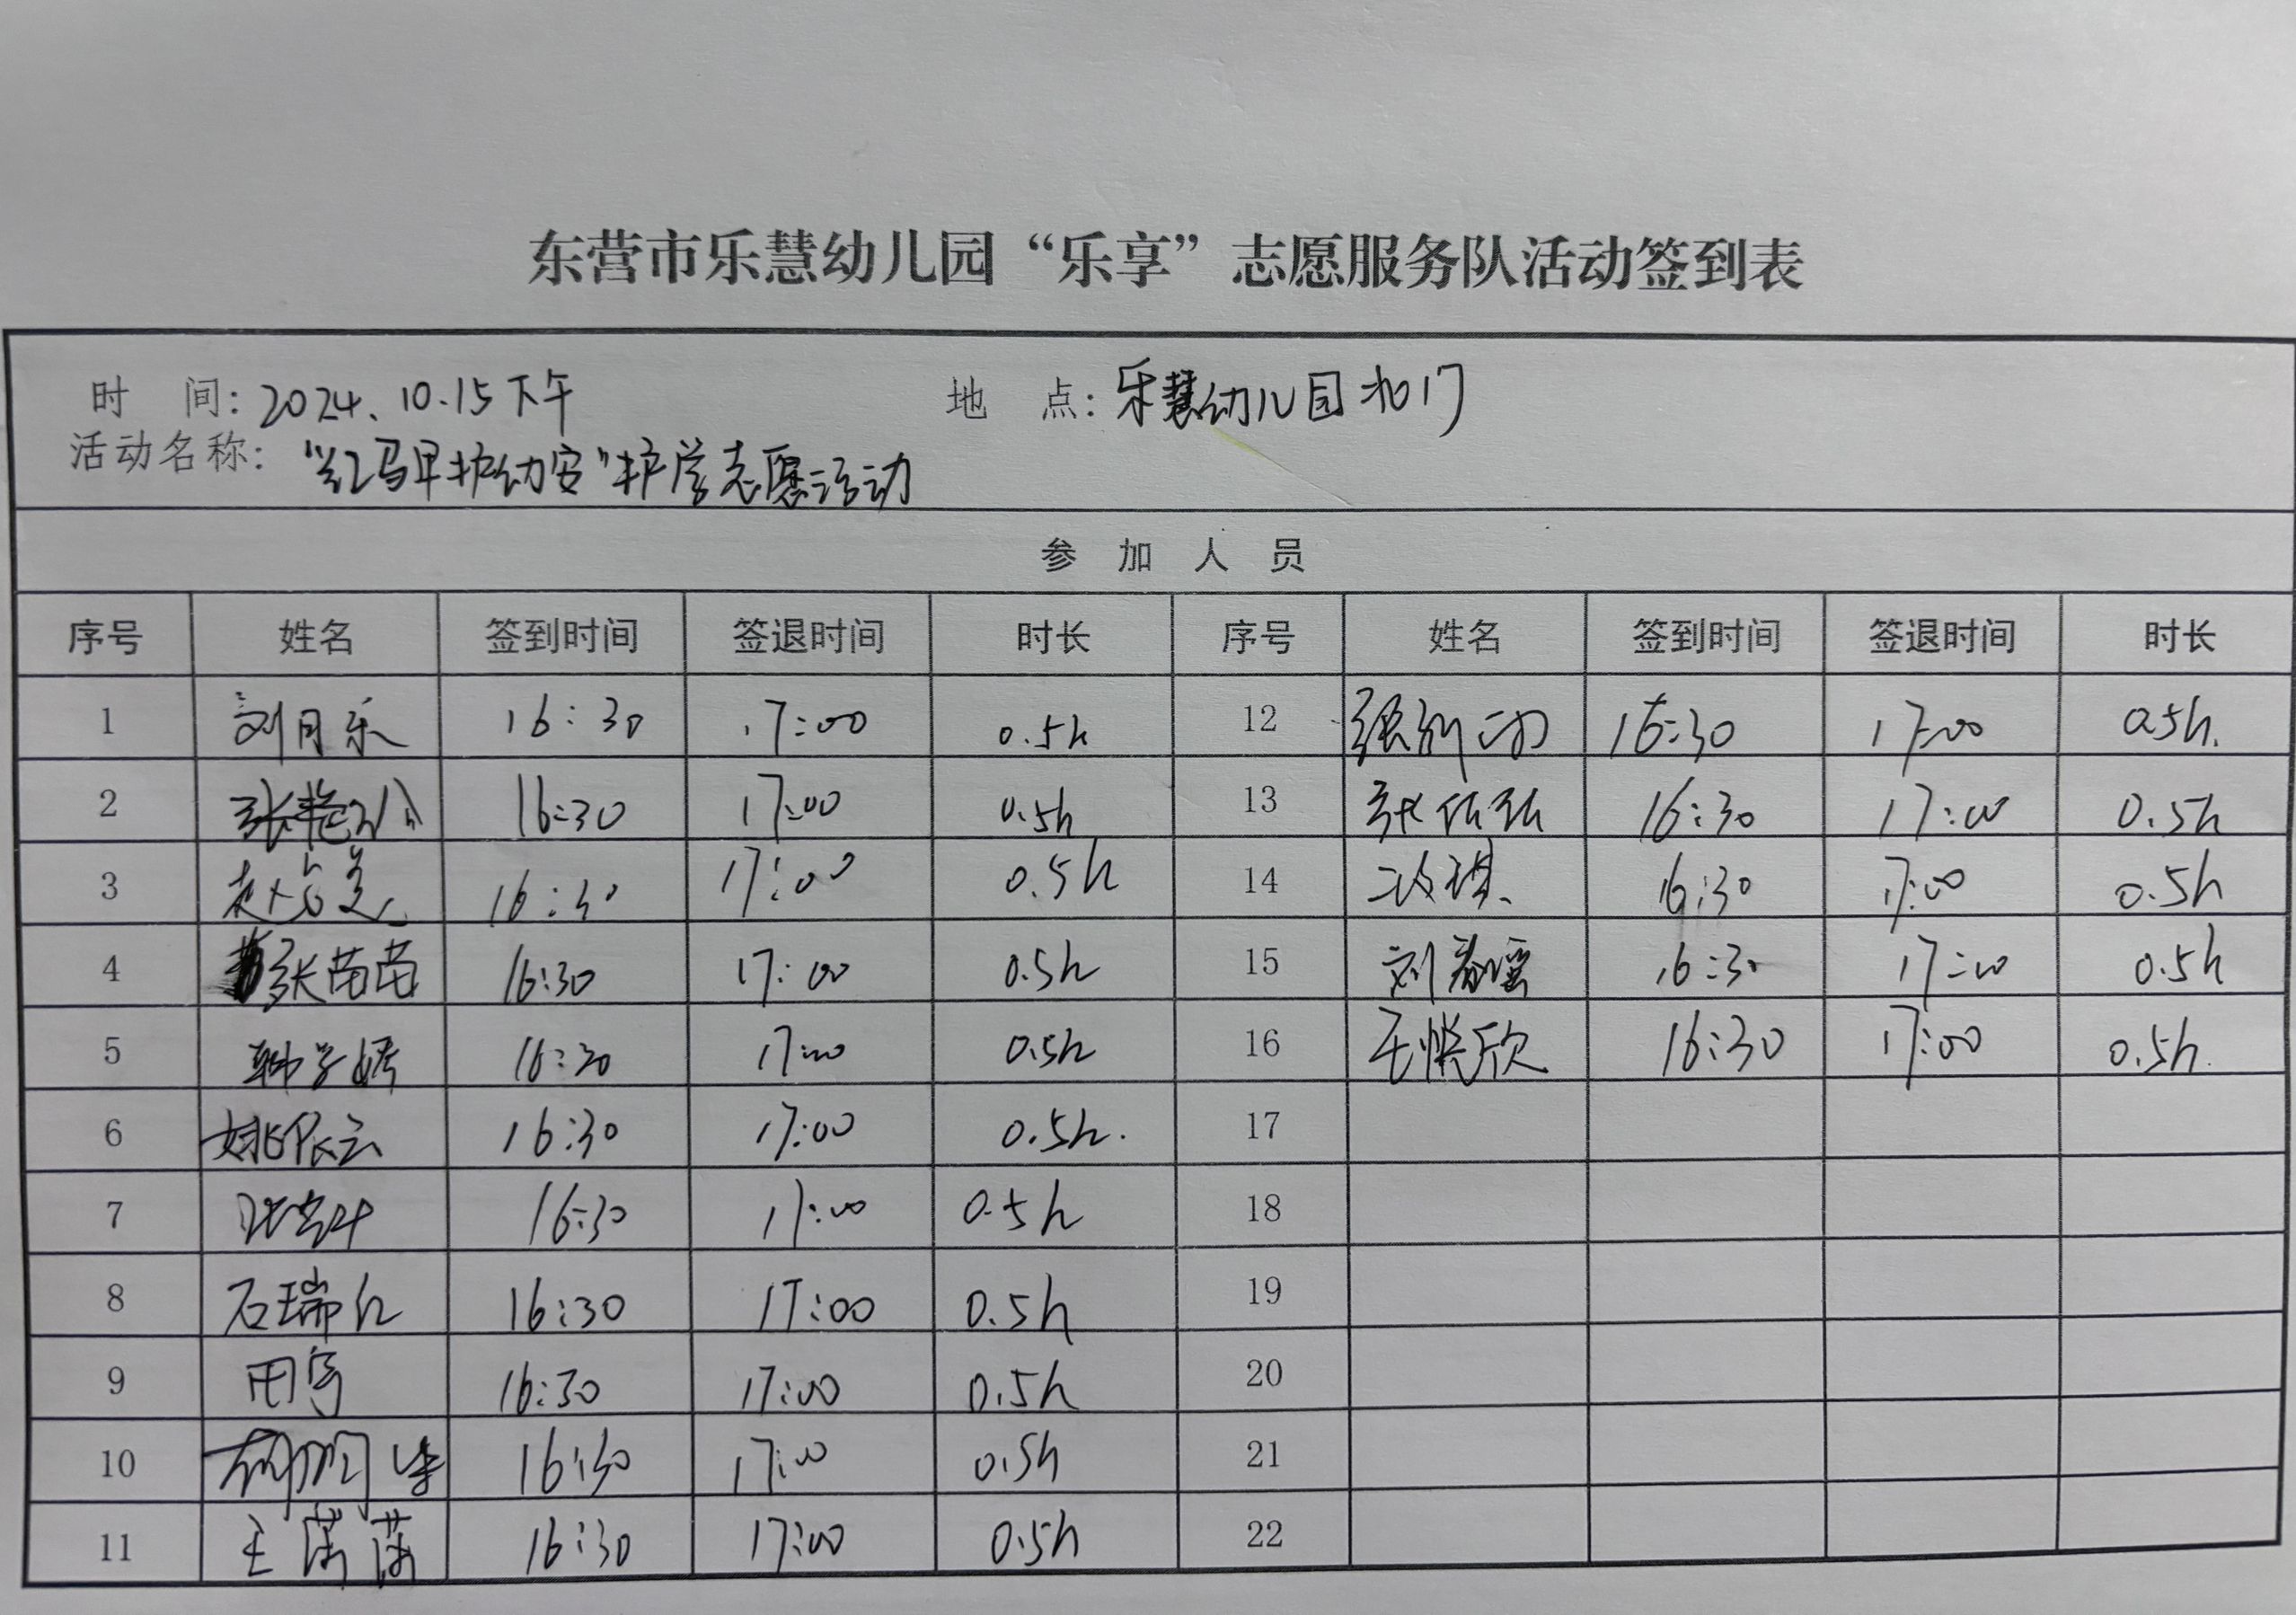 东营市乐慧幼儿园“乐享”志愿服务队活动签到表
时 间: 2024.10.15下午 地 点: 乐慧幼儿园北门
活动名称: “红马甲护幼安”护学志愿活动
参 加 人 员
序号 姓名 签到时间 签退时间 时长 序号 姓名 签到时间 签退时间 时长
1 刘月乐 16:30 17:00 0.5h 12 16:30 17:00 0.5h.
2 张艳 16:30 17:00 0.5h 13 16:30 17:00 0.5h
3 赵 16:30 17:00 0.5h 14 16:30 17:00 0.5h
4 张苗苗 16:30 17:00 0.5h 15 刘春瑶 16:30 17:00 0.5h
5 韩 16:30 17:00 0.5h 16 王悦欣 16:30 17:00 0.5h.
6 姚依云 16:30 17:00 0.5h. 17
7 16:30 17:00 0.5h 18
8 石瑞红 16:30 17:00 0.5h 19
9 田宇 16:30 17:00 0.5h 20
10 16:30 17:00 0.5h 21
11 王菡菡 16:30 17:00 0.5h 22